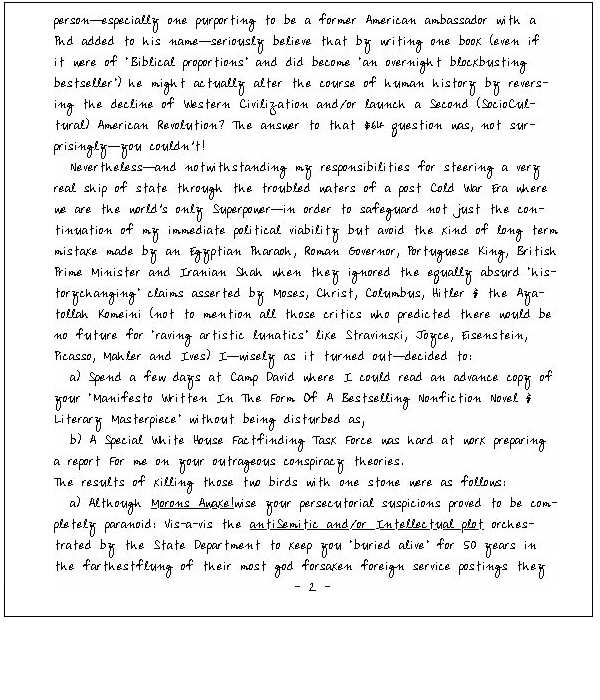 person—especially one purporting to be a former American ambassador with a
Phd added to his name—seriously believe that by writing one book (even if
it were of 'Biblical proportions' and did become 'an overnight blockbusting
bestseller') he might actually alter the course of human history by revers-
ing the decline of Western Civilization and/or launch a Second (SocioCul-
tural) American Revolution? The answer to that $64 question was, not sur-
prisingly—you couldn't!
Nevertheless—and notwithstanding my responsibilities for steering a very
real ship of state through the troubled waters of a post Cold War Era where
we are the world's only Superpower—in order to safeguard not just the con-
tinuation of my immediate political viability but avoid the kind of long term
mistake made by an Egyptian Pharaoh, Roman Governor, Portuguese King, British
Prime Minister and Iranian Shah when they ignored the equally absurd 'his-
torychanging' claims asserted by Moses, Christ, Columbus, Hitler & the Aya-
tollah Komeini (not to mention all those critics who predicted there would be
no future for 'raving artistic lunatics' like Stravinski, Joyce, Eisenstein,
Picasso, Mahler and Ives) I—wisely as it turned out—decided to:
a) Spend a few days at Camp David where I could read an advance copy of
your 'Manifesto Written In The Form Of A Bestselling Nonfiction Novel &
Literary Masterpiece' without being disturbed as,
b) A Special White House Factfinding Task Force was hard at work preparing
a report For me on your outrageous conspiracy theories.
The results of killing those two birds with one stone were as follows:
a) Although Morons Awake!wise your persecutorial suspicions proved to be com-
pletely paranoid: Vis-a-vis the antiSemitic and/or Intellectual plot orches-
trated by the State Department to keep you 'buried alive' for 50 years in
the farthestflung of their most god forsaken foreign service postings they
- 2 -